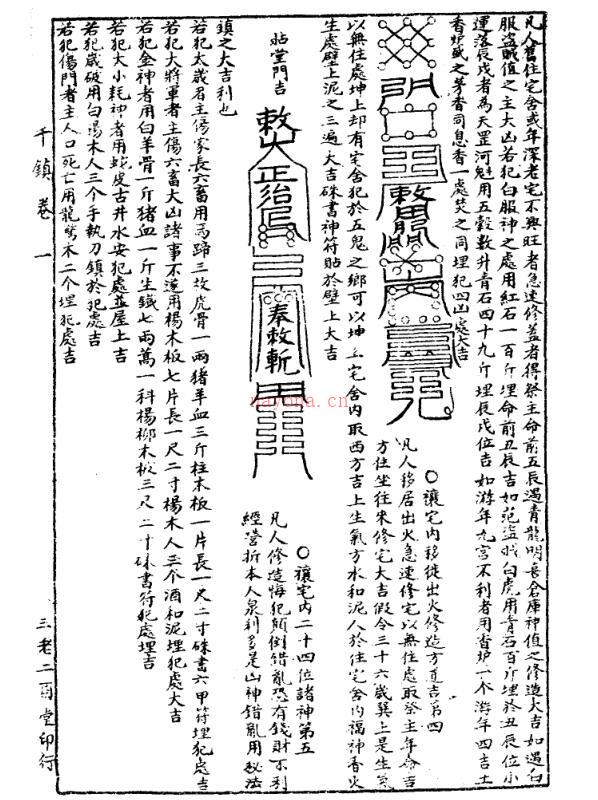 凡人舊住宅舍或年深老宅不興旺者急速修蓋者得祭主命前五辰遇青龍明喜倉庫神值之修造大吉如遇白
服盜賊值之主大凶若犯白服神之處用紅石一百斤埋命前丑辰吉如犯盜賊白虎用青石百斤埋於丑辰位小
運落辰戌者為天罡河魁用五穀數升青石四十九斤埋辰戌位吉如游年九宮不利者用香炉一个游年四吉土
香炉盛之茅香同息香一處焚之同埋犯四凶處大吉
○禳宅內移徙出火修造方道吉第四
凡人移居出火急速修宅以無住處取祭主年命吉
方住坐往來修宅大吉假令三十六歲巽上是生氣
以無住處坤上却有宅舍犯於五鬼之鄉可以坤上宅舍內取西方吉上生氣方水和泥人於住宅舍內福神香火
生處壁上泥之三遍大吉硃書神符貼於壁上大吉
貼堂門吉
敕
正治
奉敕斬
○禳宅內二十四位諸神第五
凡人修造悔犯顛倒錯亂恐有錢財不利
經營折本人泉利多是山神錯亂用秘法
鎮之大吉利也
若犯太歲君主傷家長六畜用馬蹄三故虎骨一兩猪羊血三斤柱木板一片長一尺二寸硃書六甲符埋犯處吉
若犯大將軍者主傷六畜大凶諸事不遂用楊木板七片長一尺二寸楊木人三个酒和泥埋犯處大吉
若犯金神者用白羊骨一斤猪血一斤生鐵七兩萬一科楊柳木板三尺二寸硃書符犯處埋吉
若犯大小耗神者用蛇皮古井水安犯處並屋上吉
若犯歲破用白楊木人三个手執刀鎮於犯處吉
若犯傷門者主人口死亡用龍鷩木二个埋犯處吉
千鎮卷 一
三老二酉堂印行
nayona.cn